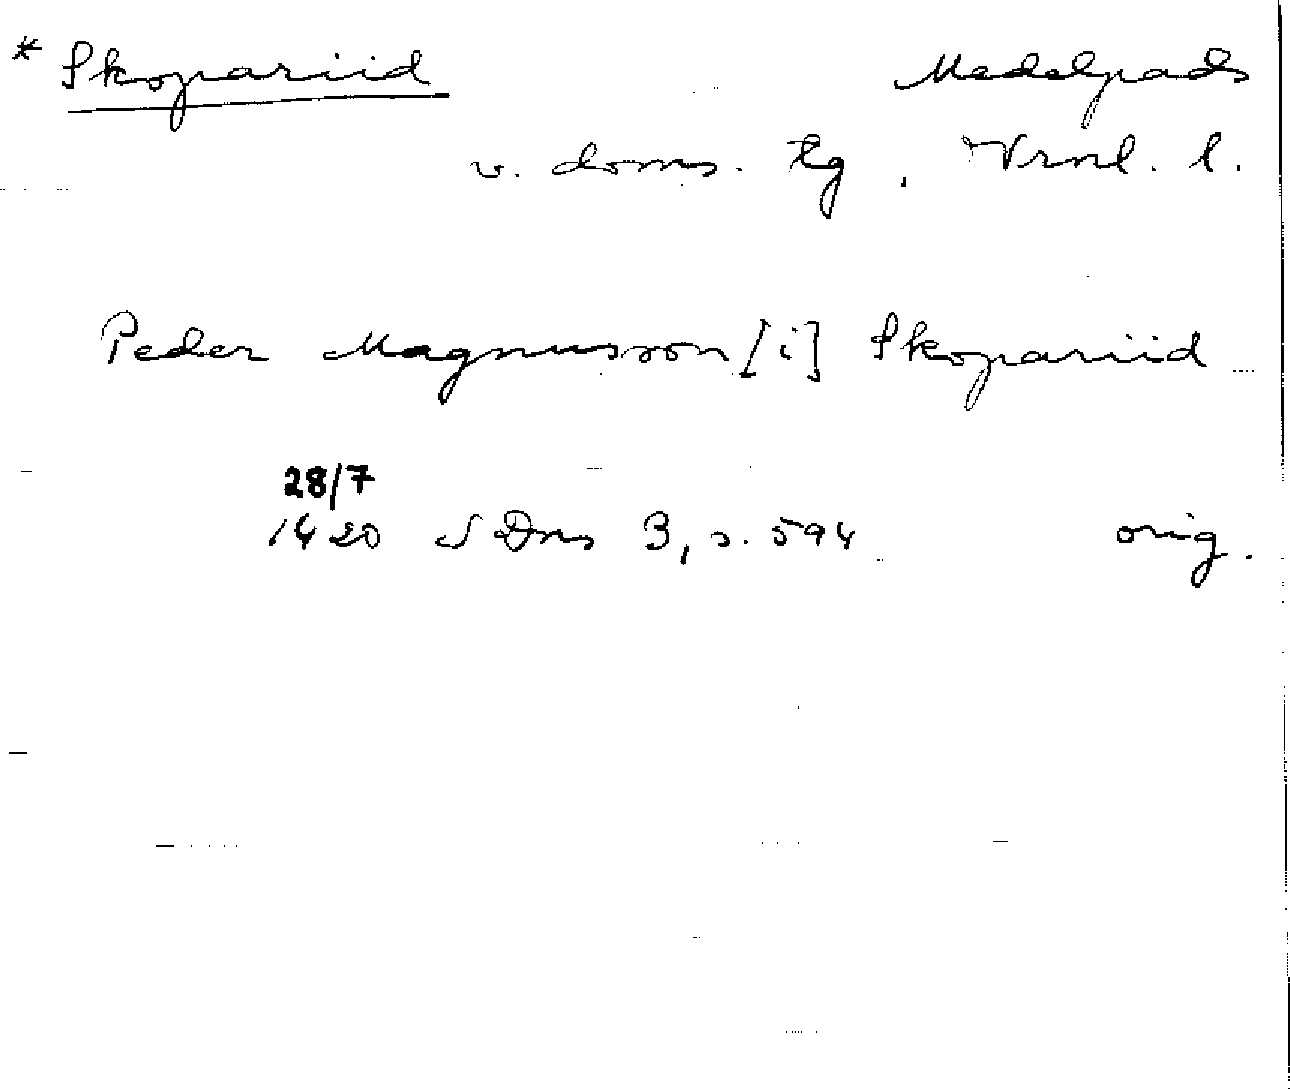 * Skopariid Medelpads
v. doms. tg , Vrnl. l.
Peder Magnusson [i] Skopariid
28/7
1420 SDns 3, s. 594 orig.